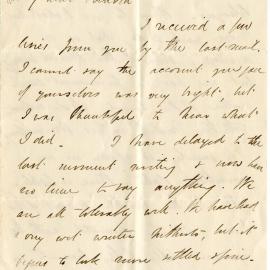 I received a few
lines from you by the last mail.
I cannot say the account you gave
of yourselves was very bright, but
I was thankful to hear what
I did. I have delayed to the
last moment writing & now have
no time to say anything. We
are all tolerably well. We have had
a very wet winter hitherto, but it
begins to look more settled